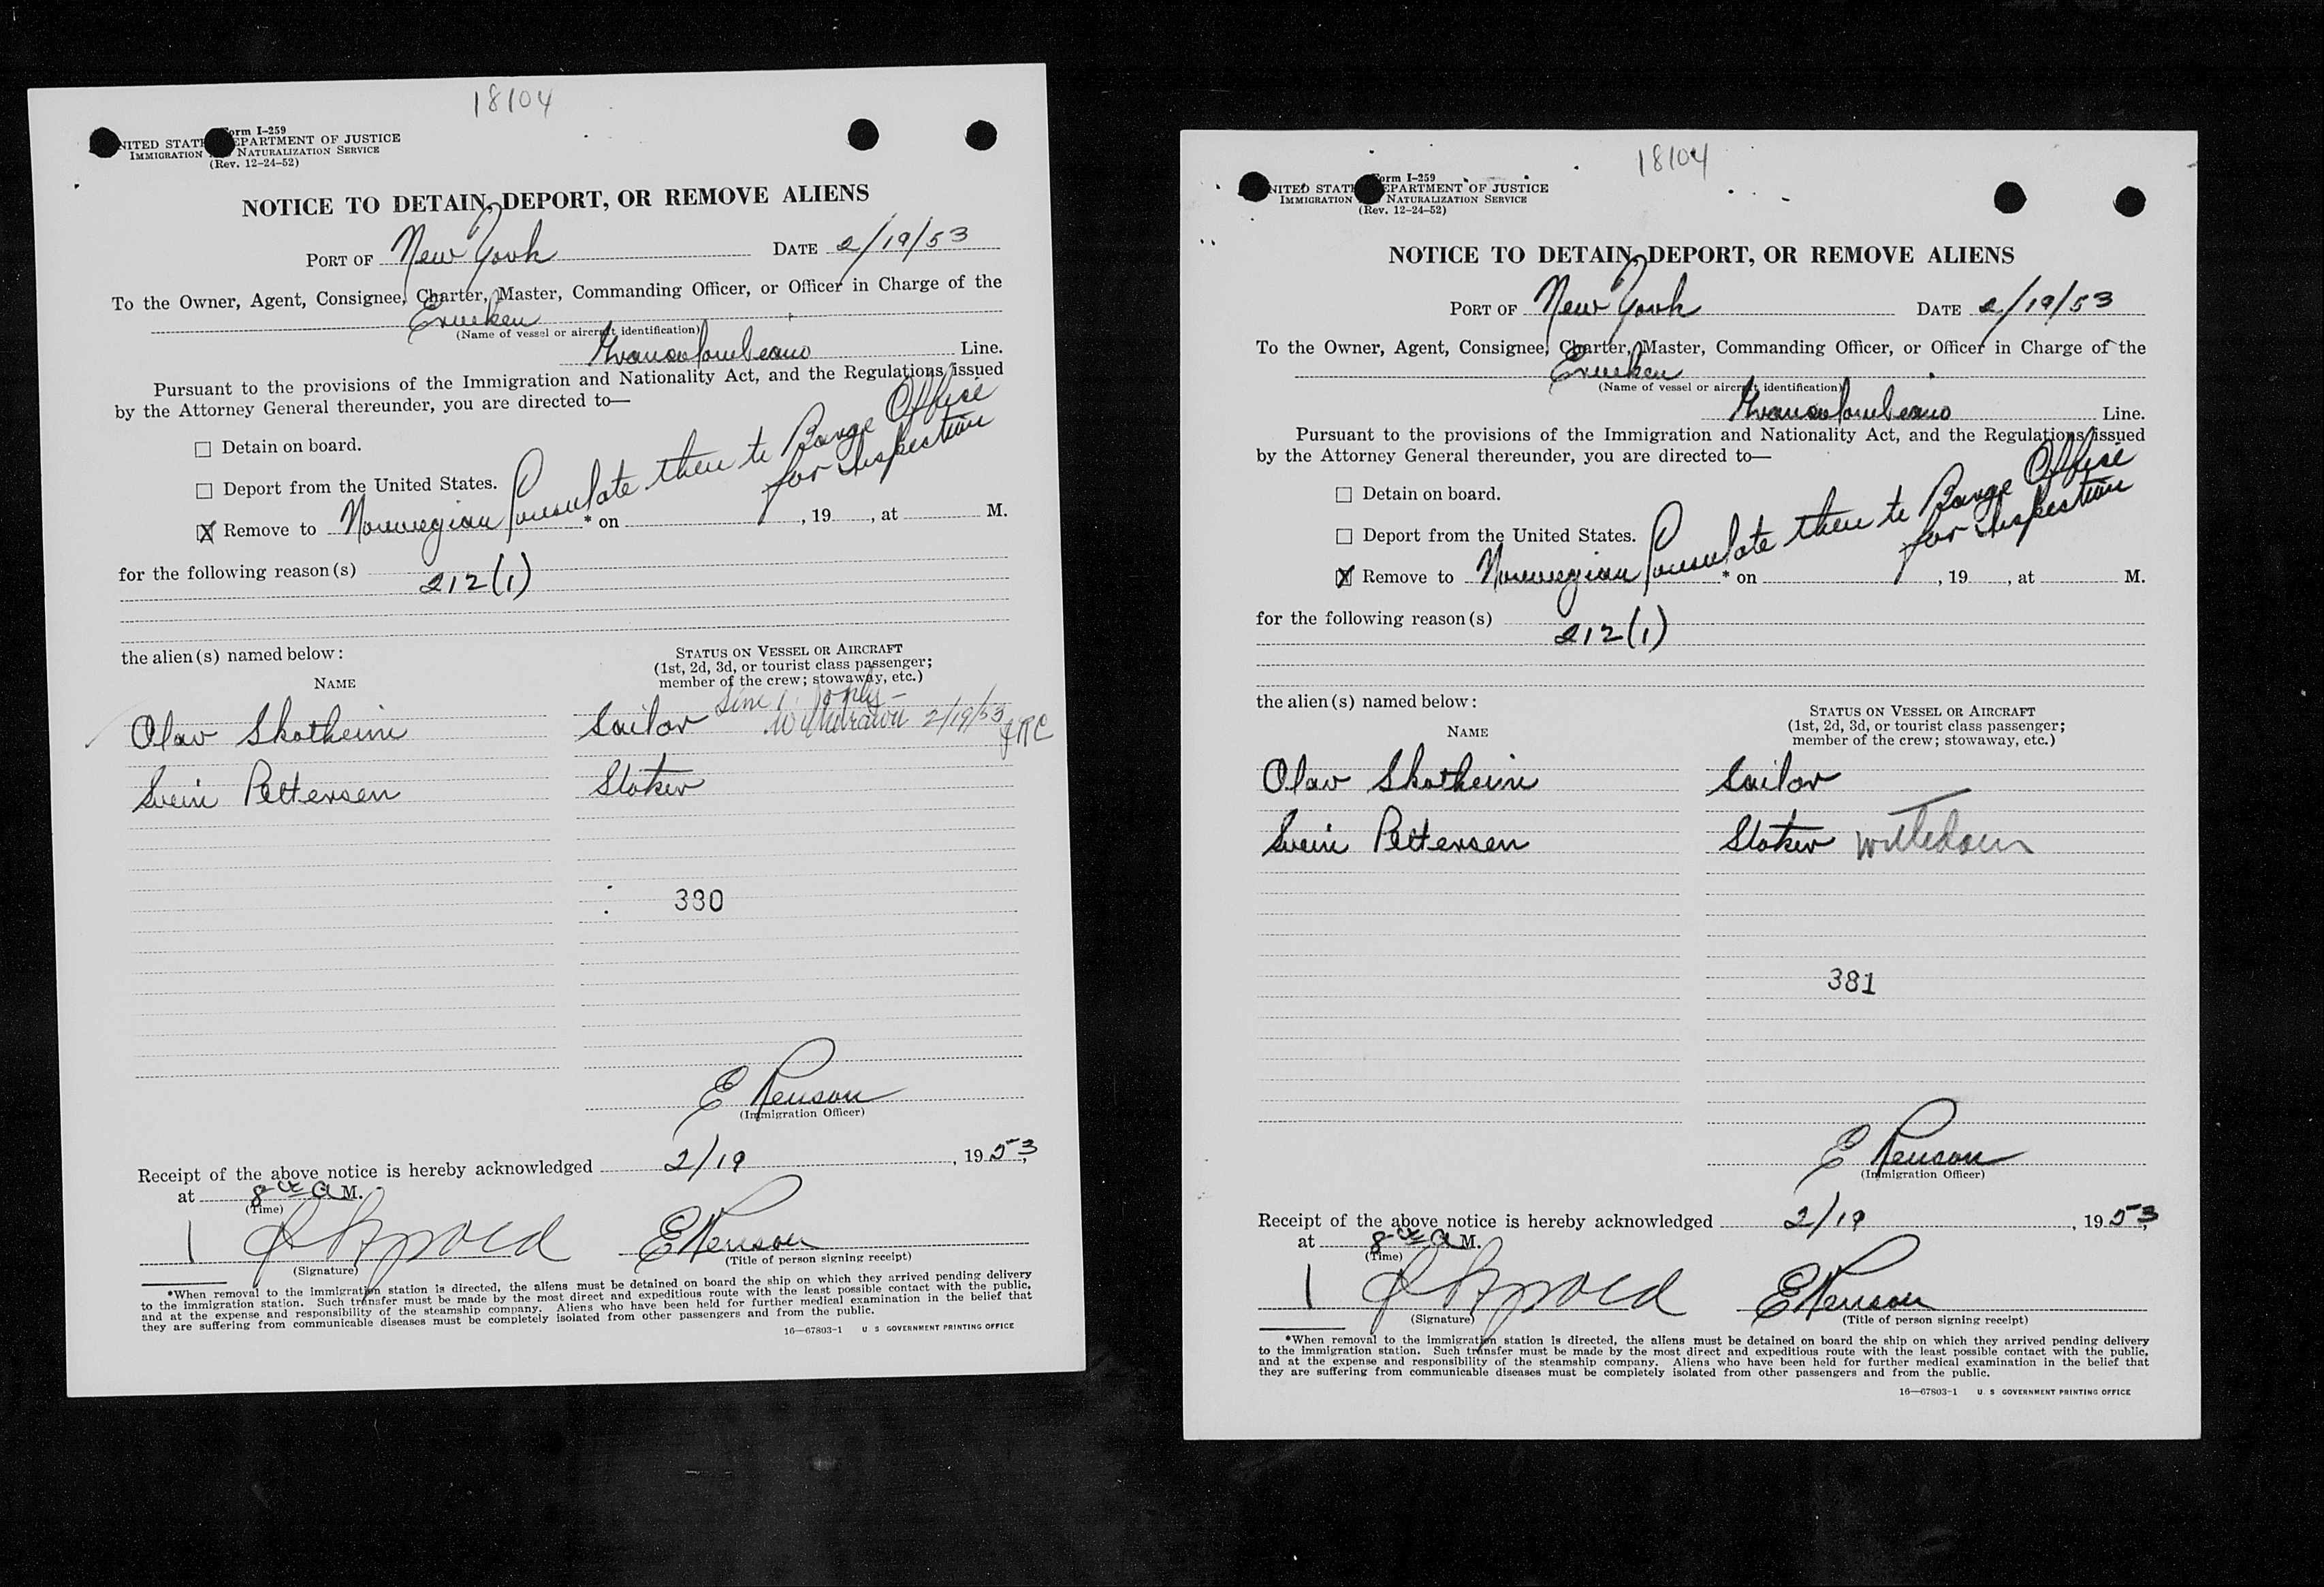 18104
Form I-259
UNITED STATES DEPARTMENT OF JUSTICE
IMMIGRATION NATURALIZATION SERVICE
(Rev. 12-24-52)
NOTICE TO DETAIN, DEPORT, OR REMOVE ALIENS
PORT OF New York DATE 2/19/53
To the Owner, Agent, Consignee, Charter, Master, Commanding Officer, or Officer in Charge of the
(Name of vessel or aircraft identification)
Line.
Pursuant to the provisions of the Immigration and Nationality Act, and the Regulations issued
by the Attorney General thereunder, you are directed to—
☐ Detain on board.
☐ Deport from the United States.
☒ Remove to Norwegian Consulate then to Barge Office for inspection * on , 19 , at M.
for the following reason(s)
212(1)
the alien(s) named below:
STATUS ON VESSEL OR AIRCRAFT
(1st, 2d, 3d, or tourist class passenger;
member of the crew; stowaway, etc.)
NAME
Line 1 only –
Olav Skotheim Sailor Withdrawn 2/19/53
JRC
Svein Pettersen Stoker
380
E Renson
(Immigration Officer)
Receipt of the above notice is hereby acknowledged 2/19, 1953,
at 8 00 A M.
(Time)
E Renson
(Signature) (Title of person signing receipt)
*When removal to the immigration station is directed, the aliens must be detained on board the ship on which they arrived pending delivery
to the immigration station. Such transfer must be made by the most direct and expeditious route with the least possible contact with the public,
and at the expense and responsibility of the steamship company. Aliens who have been held for further medical examination in the belief that
they are suffering from communicable diseases must be completely isolated from other passengers and from the public.
16—67803-1 U S GOVERNMENT PRINTING OFFICE
18104
Form I-259
UNITED STATES DEPARTMENT OF JUSTICE
IMMIGRATION NATURALIZATION SERVICE
(Rev. 12-24-52)
NOTICE TO DETAIN, DEPORT, OR REMOVE ALIENS
PORT OF New York DATE 2/19/53
To the Owner, Agent, Consignee, Charter, Master, Commanding Officer, or Officer in Charge of the
(Name of vessel or aircraft identification)
Line.
Pursuant to the provisions of the Immigration and Nationality Act, and the Regulations issued
by the Attorney General thereunder, you are directed to—
☐ Detain on board.
☐ Deport from the United States.
☒ Remove to Norwegian Consulate then to Barge Office for inspection * on , 19 , at M.
for the following reason(s)
212(1)
the alien(s) named below:
STATUS ON VESSEL OR AIRCRAFT
(1st, 2d, 3d, or tourist class passenger;
member of the crew; stowaway, etc.)
NAME
Olav Skotheim Sailor
Svein Pettersen Stoker withdrawn
381
E Renson
(Immigration Officer)
Receipt of the above notice is hereby acknowledged 2/19, 1953,
at 8 00 A M.
(Time)
E Renson
(Signature) (Title of person signing receipt)
*When removal to the immigration station is directed, the aliens must be detained on board the ship on which they arrived pending delivery
to the immigration station. Such transfer must be made by the most direct and expeditious route with the least possible contact with the public,
and at the expense and responsibility of the steamship company. Aliens who have been held for further medical examination in the belief that
they are suffering from communicable diseases must be completely isolated from other passengers and from the public.
16—67803-1 U S GOVERNMENT PRINTING OFFICE